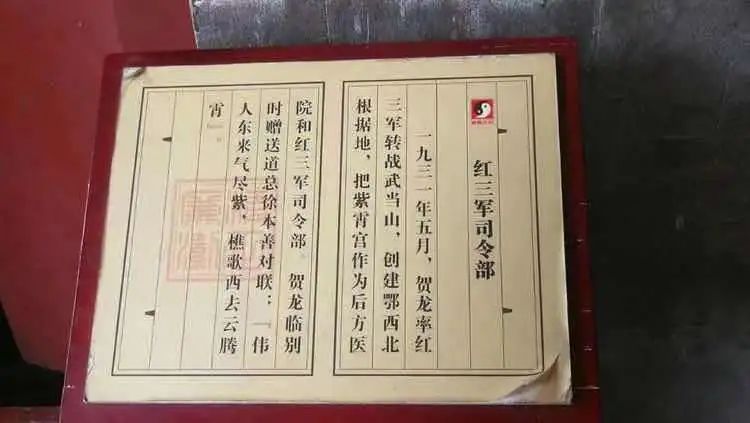 红三军司令部
一九三一年五月，贺龙率红
三军转战武当山，创建鄂西北
根据地，把紫霄宫作为后方医
院和红三军司令部。贺龙临别
时赠送道总徐本善对联；『伟
人东来气尽紫，樵歌西去云腾
霄』。